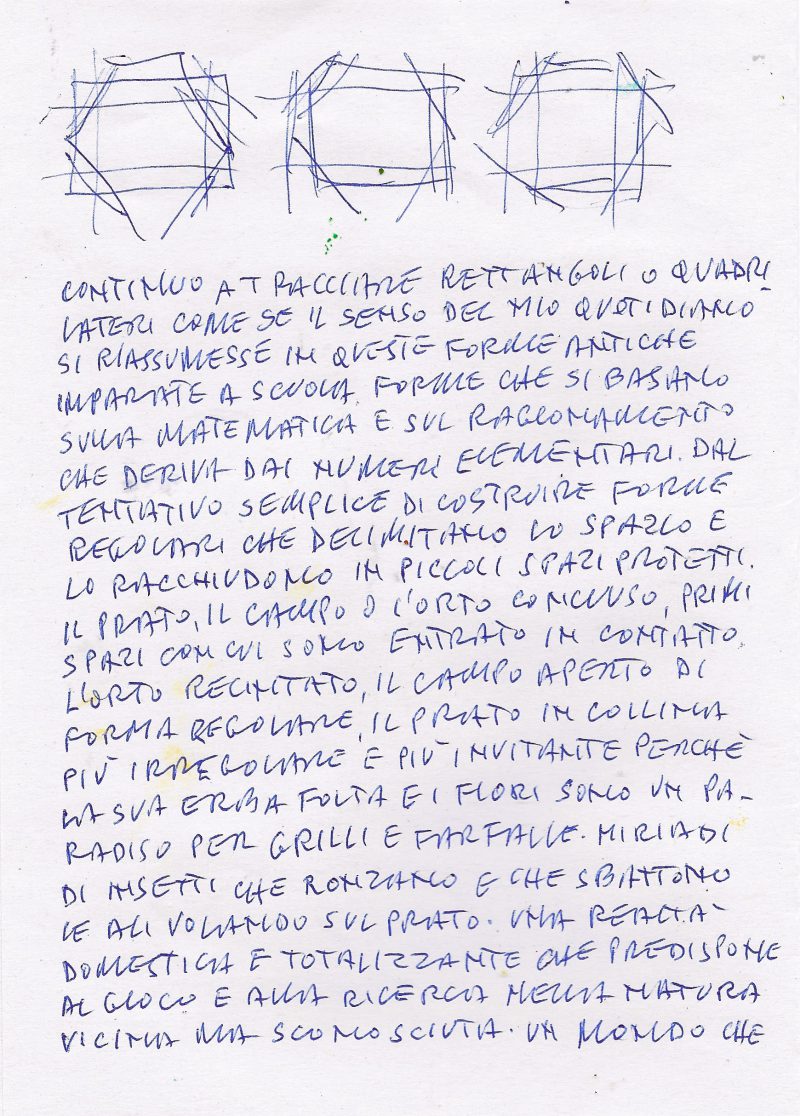 CONTINUO A TRACCIARE RETTANGOLI O QUADRI
LATERI COME SE IL SENSO DEL MIO QUOTIDIANO
SI RIASSUMESSE IN QUESTE FORME ANTICHE
IMPARATE A SCUOLA. FORME CHE SI BASANO
SULLA MATEMATICA E SUL RAGIONAMENTO
CHE DERIVA DAI NUMERI ELEMENTARI. DAL
TENTATIVO SEMPLICE DI COSTRUIRE FORME
REGOLARI CHE DELIMITANO LO SPAZIO E
LO RACCHIUDONO IN PICCOLI SPAZI PROTETTI.
IL PRATO, IL CAMPO O L'ORTO CONCLUSO, PRIMI
SPAZI CON CUI SONO ENTRATO IN CONTATTO.
L'ORTO RECINTATO, IL CAMPO APERTO DI
FORMA REGOLARE, IL PRATO IN COLLINA
PIÙ IRREGOLARE E PIÙ INVITANTE PERCHÈ
LA SUA ERBA FOLTA E I FIORI SONO UN PA-
RADISO PER GRILLI E FARFALLE. MIRIADI
DI INSETTI CHE RONZANO E CHE SBATTONO
LE ALI VOLANDO SUL PRATO. UNA REALTÀ
DOMESTICA E TOTALIZZANTE CHE PREDISPONE
AL GIOCO E ALLA RICERCA NELLA NATURA
VICINA MA SCONOSCIUTA. UN MONDO CHE